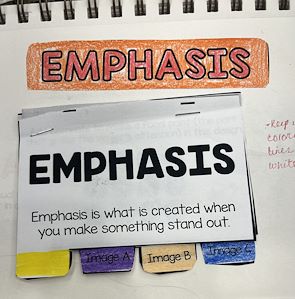 EMPHASIS
EMPHASIS
Emphasis is what is created when
you make something stand out.
Image A
Image B
Image C